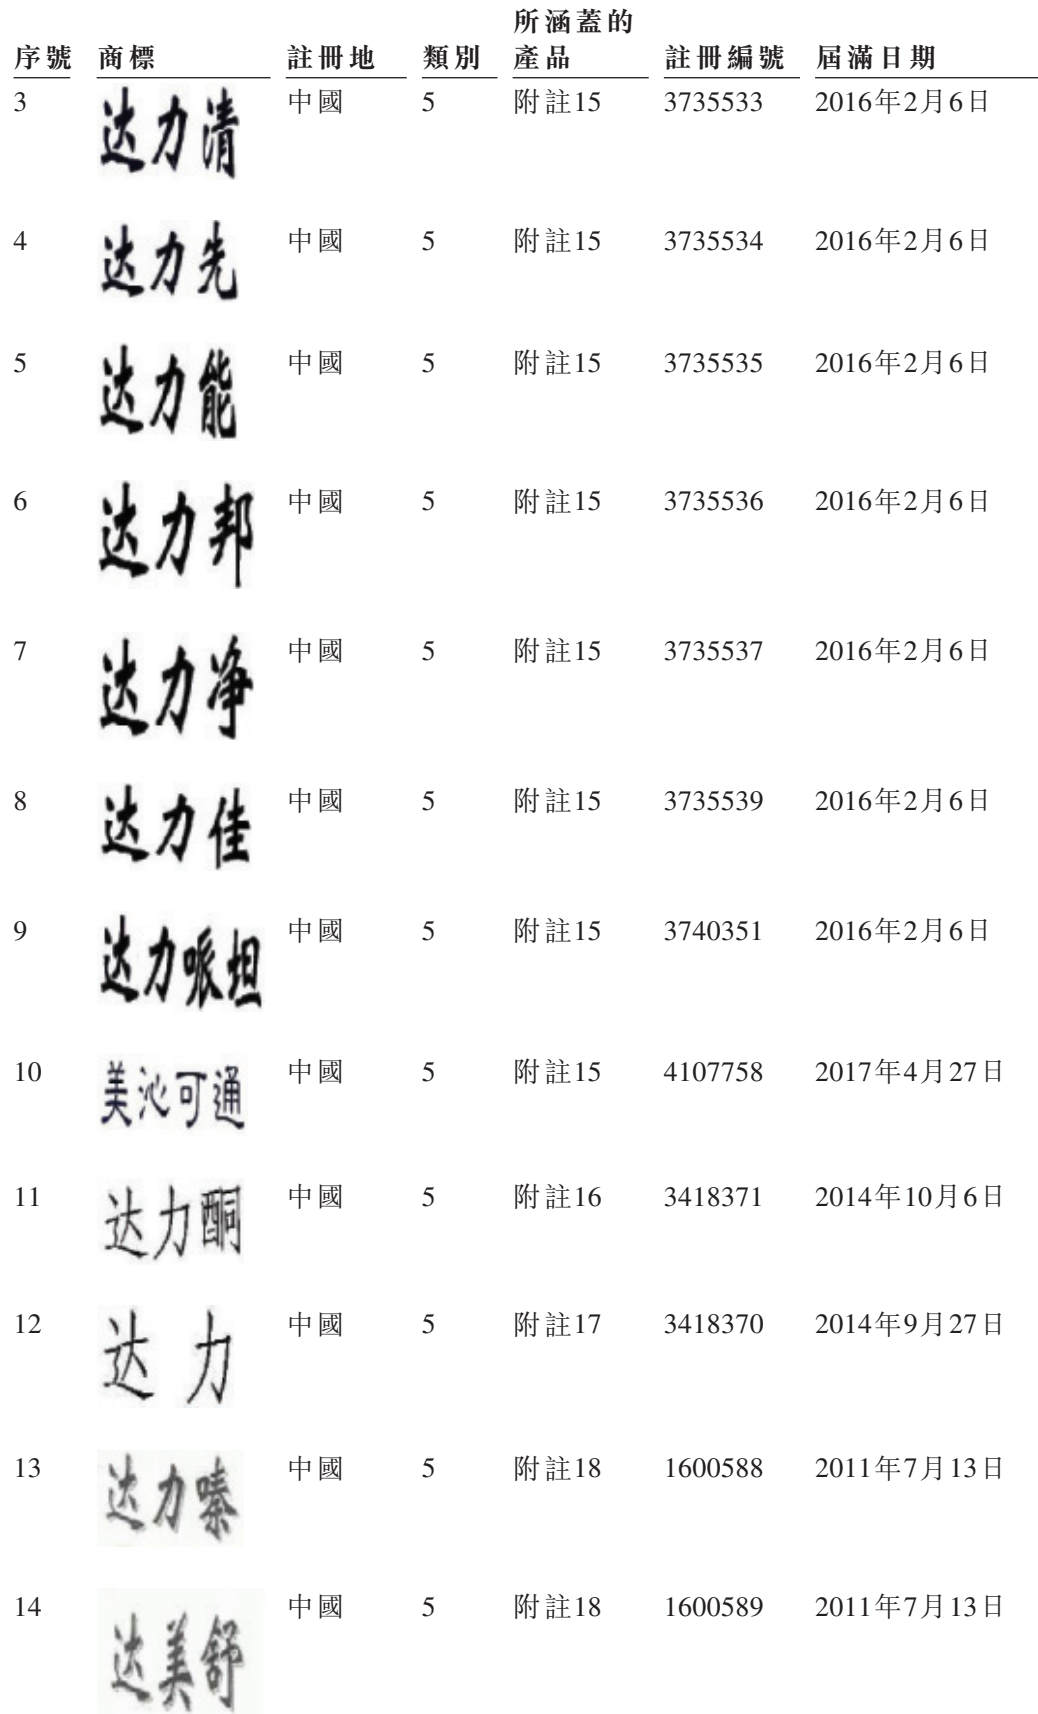 所涵蓋的
序號 商標 註冊地 類別 產品 註冊編號 屆滿日期
3 达力清 中國 5 附註15 3735533 2016年2月6日
4 达力先 中國 5 附註15 3735534 2016年2月6日
5 达力能 中國 5 附註15 3735535 2016年2月6日
6 达力邦 中國 5 附註15 3735536 2016年2月6日
7 达力净 中國 5 附註15 3735537 2016年2月6日
8 达力佳 中國 5 附註15 3735539 2016年2月6日
9 达力哌坦 中國 5 附註15 3740351 2016年2月6日
10 美沁可通 中國 5 附註15 4107758 2017年4月27日
11 达力酮 中國 5 附註16 3418371 2014年10月6日
12 达力 中國 5 附註17 3418370 2014年9月27日
13 达力嗪 中國 5 附註18 1600588 2011年7月13日
14 达美舒 中國 5 附註18 1600589 2011年7月13日